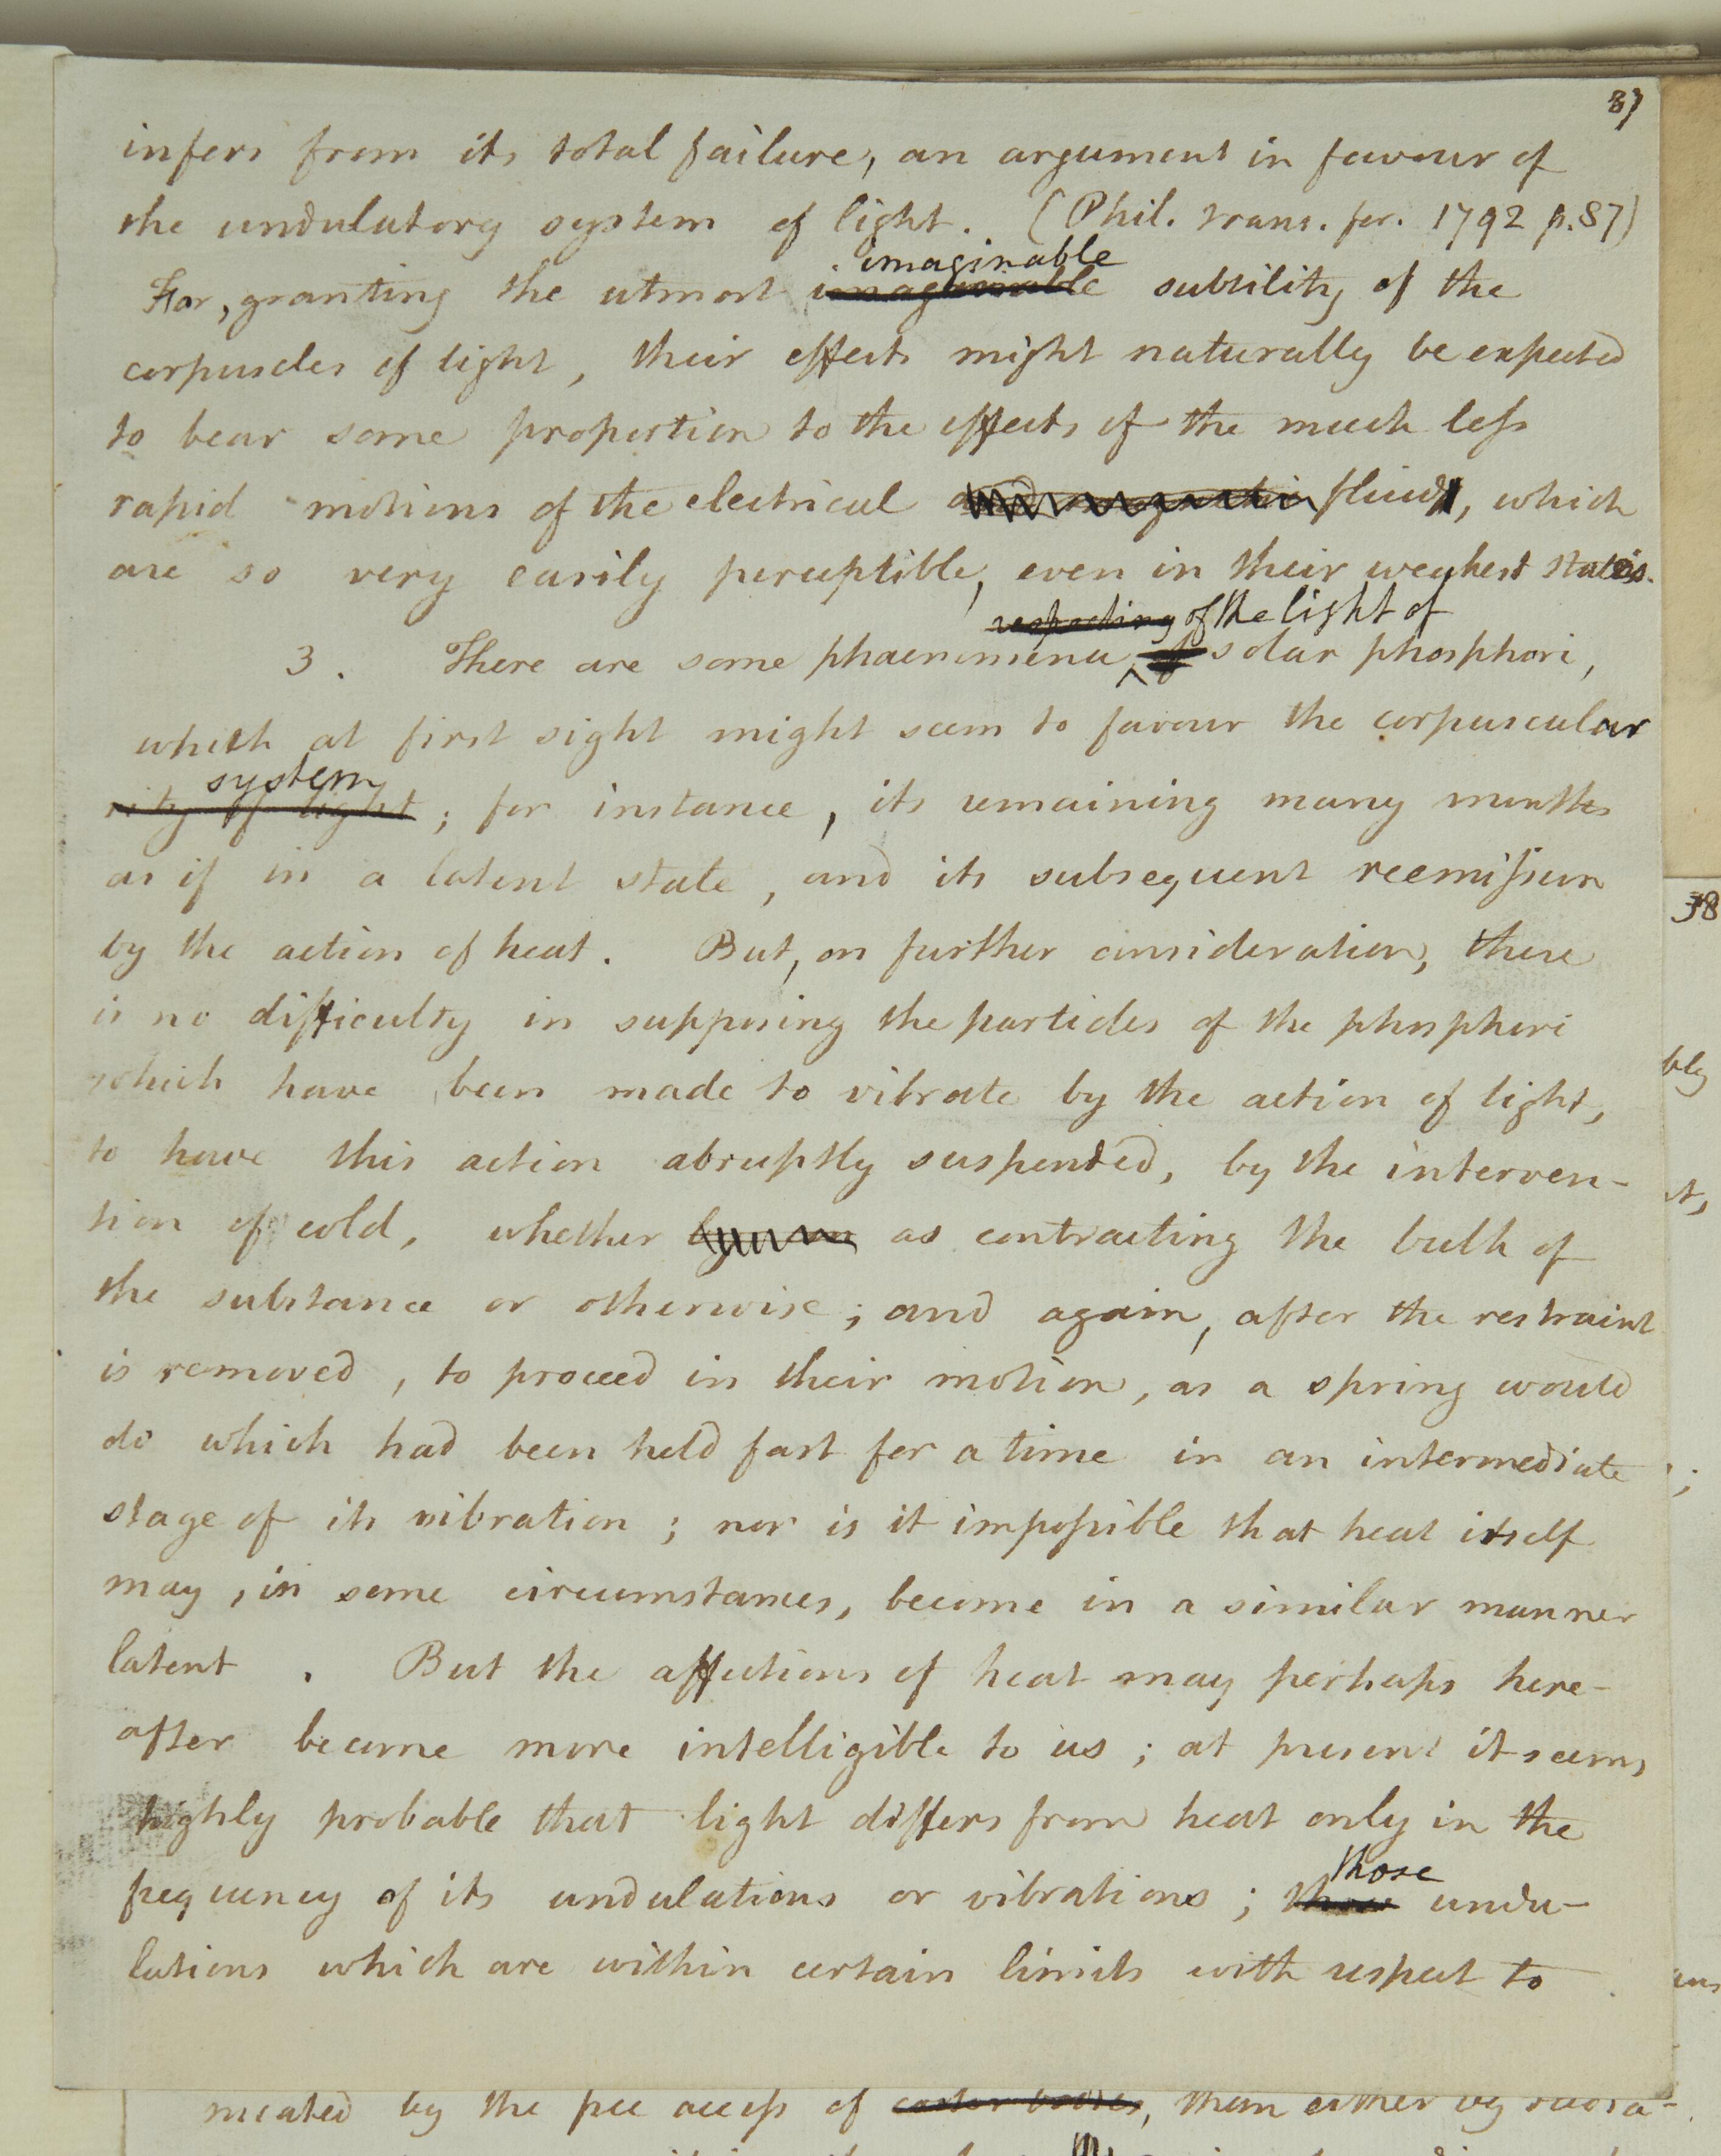 37
infers from its total failure, an argument in favour of
the undulatory system of light. (Phil. trans. for. 1792 p.87)
imaginable
For, granting the utmost imaginable subtility of the
corpuscles of light, their effects might naturally be expected
to bear some proportion to the effects of the much less
rapid motions of the electrical and magnetic fluid, which
are so very easily perceptible, even in their weakest states.
respecting of the light of
3. There are some phaenomena of solar phosphori,
which at first sight might seem to favour the corpuscular
system
rity of light; for instance, its remaining many months
as if in a latent state, and its subsequent reemission
by the action of heat. But, on further consideration, there
is no difficulty in supposing the particles of the phosphori
which have been made to vibrate by the action of light,
to have this action abruptly suspended, by the interven-
tion of cold, whether as contracting the bulk of
the substance or otherwise; and again, after the restraint
is removed, to proceed in their motion, as a spring would
do which had been held fast for a time in an intermediate
stage of its vibration; nor is it impossible that heat itself
may, in some circumstances, become in a similar manner
latent. But the affections of heat may perhaps here-
after become more intelligible to us; at present it seems
highly probable that light differs from heat only in the
frequency of its undulations or vibrations; those undu-
those
lations which are within certain limits with respect to
38
bly
t,
;
ans
nicated by the free access of bodies, than either by radia-